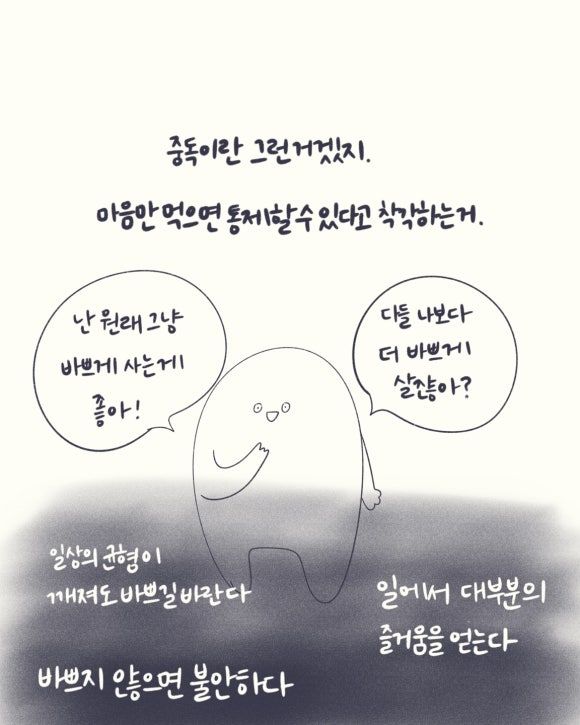 중독이란 그런거겠지.
마음만 먹으면 통제할수있다고 착각하는거.
난 원래 그냥
바쁘게 사는게
좋아!
다들 나보다
더 바쁘게
살잖아?
일상의 균형이
깨져도 바쁘길바란다
일에서 대부분의
즐거움을 얻는다
바쁘지 않으면 불안하다